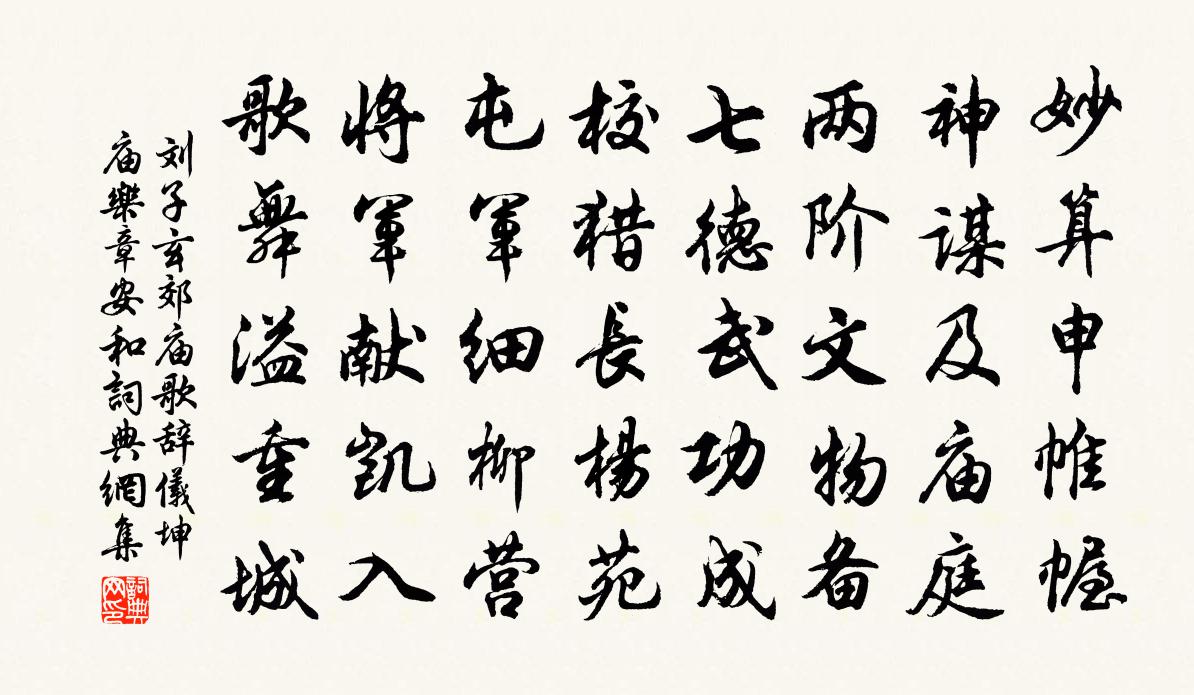 妙算申帷幄
神谋及庙庭
两阶文物备
七德武功成
校猎长杨苑
屯军细柳营
将军献凯入
歌舞溢重城
刘子玄郊庙歌辞儀坤
庙樂章安和詞典網集
詞典
网印